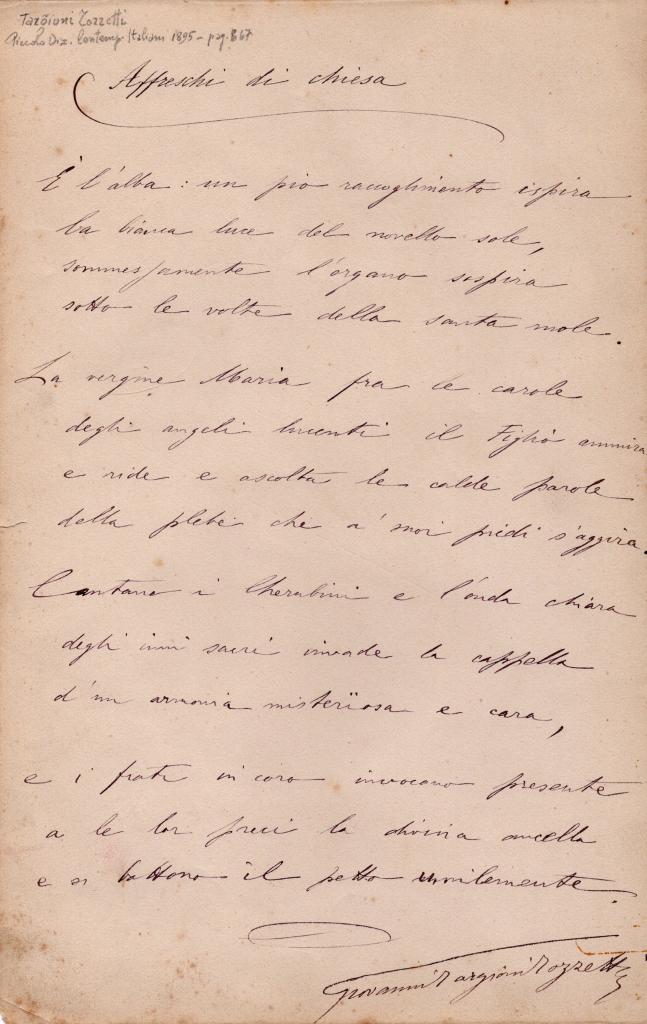 Targioni Tozzetti
Piccolo Diz. Contemp. Italiani 1895 - pag. 867
Affreschi di chiesa
È l'alba: un pio raccoglimento ispira
la bianca luce del novello sole,
sommessamente l'organo sospira
sotto le volte della santa mole.
La vergine Maria fra le carole
degli angeli lucenti il Figlio ammira
e ride e ascolta le calde parole
della plebe che a' suoi piedi s'aggira.
Cantano i Cherubini e l'onda chiara
degli inni sacri invade la cappella
d'un armonia misterïosa e cara,
e i frati in coro invocano presente
a le lor preci la divina ancella
e si battono il petto umilemente.
Giovanni Targioni Tozzetti